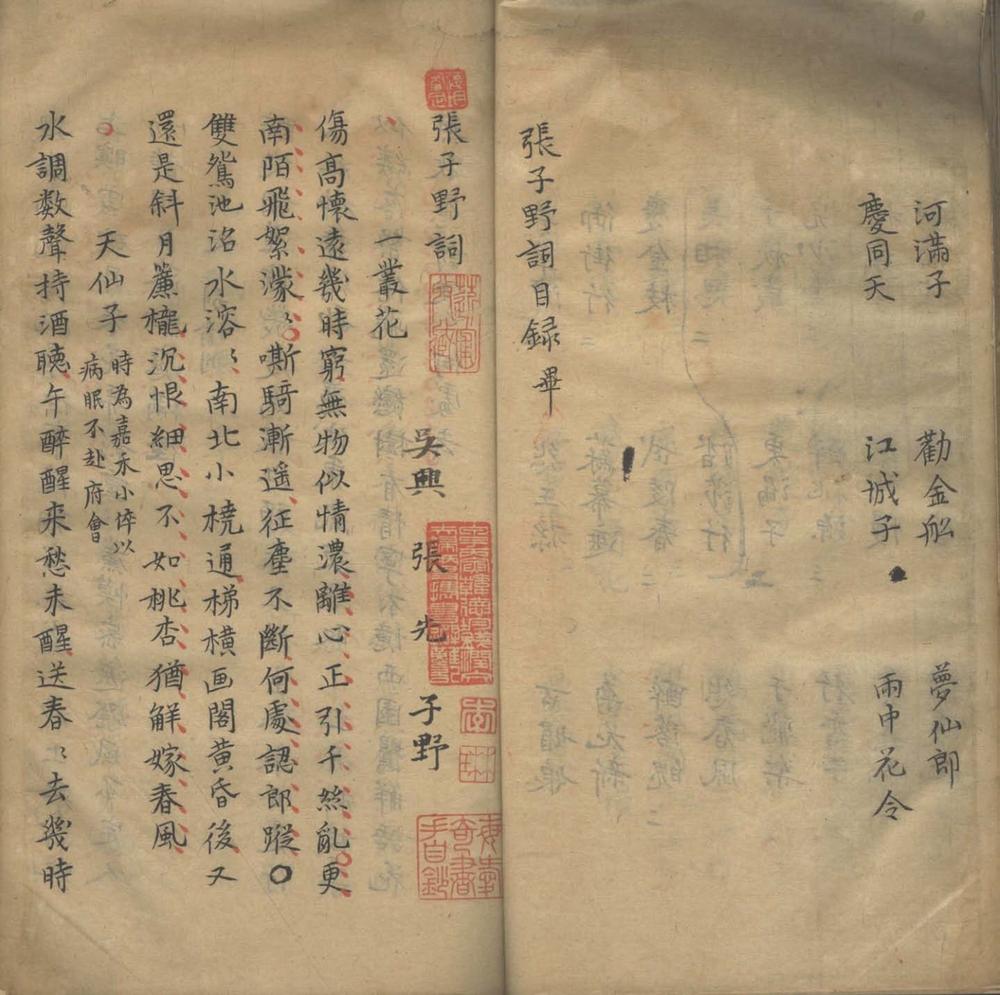 河滿子 勸金船 夢仙郎
慶同天 江城子 雨中花令
張子野詞目録 畢
張子野詞
吳興 張先 子野
一叢花
傷高懷遠幾時窮無物似情濃離心正引千絲亂更
南陌飛絮濛〻嘶騎漸遥征塵不斷何處認郎蹤
雙鴛池沼水溶〻南北小橈通梯橫画閣黄昏後又
還是斜月簾櫳沉恨細思不如桃杏猶解嫁春風
天仙子 時為嘉禾小倅以
病眠不赴府會
水調數聲持酒聽午醉醒来愁未醒送春〻去幾時